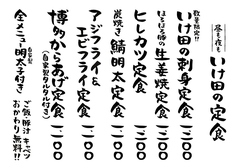 昼も夜も
いけ田の定食
数量限定!!
いけ田の刺身定食 一二〇〇
ほろほろ豚の
生姜焼定食 一一〇〇
ヒレカツ定食 一三〇〇
炭焼き
鯖明太定食 一二〇〇
アジフライ&
エビフライ定食 一二〇〇
博多からあげ定食 一一〇〇
(自家製タルタル付き)
自家製
全メニュー明太子付き
ご飯・豚汁・キャベツ
おかわり無料!!